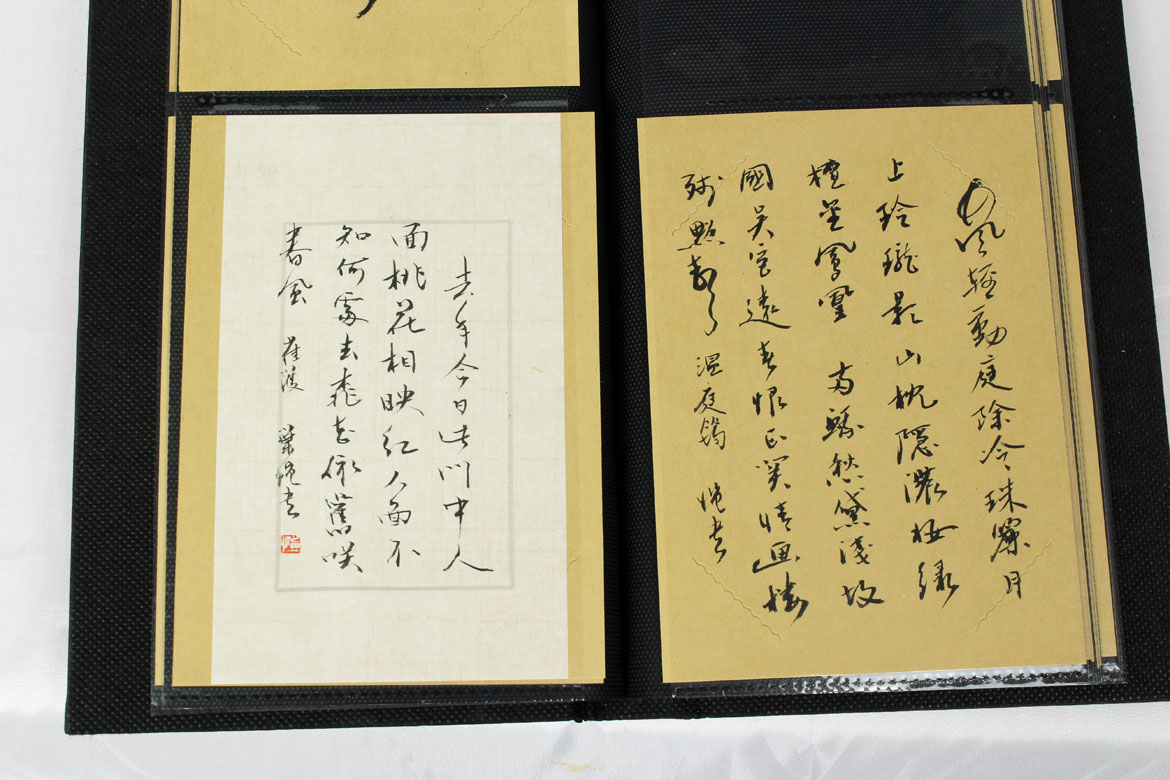 竹風輕動庭除冷珠簾月
上玲瓏影山枕隱濃妝綠
檀金鳳凰 兩蛾愁黛淺故
國吳宮遠春恨正関情画樓
殘點聲 温庭筠 書
去年今日此门中人
面桃花相映红人面不
知何處去桃花依舊咲
春風 崔護 葉書